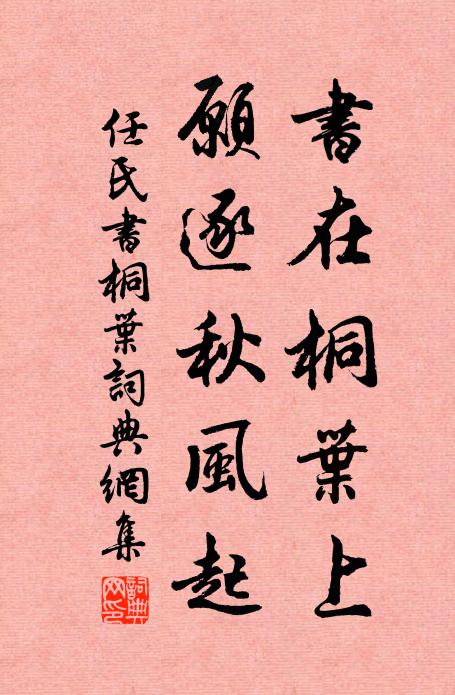 書在桐葉上
願逐秋風起
任氏書桐葉詞典網集
詞典
网印